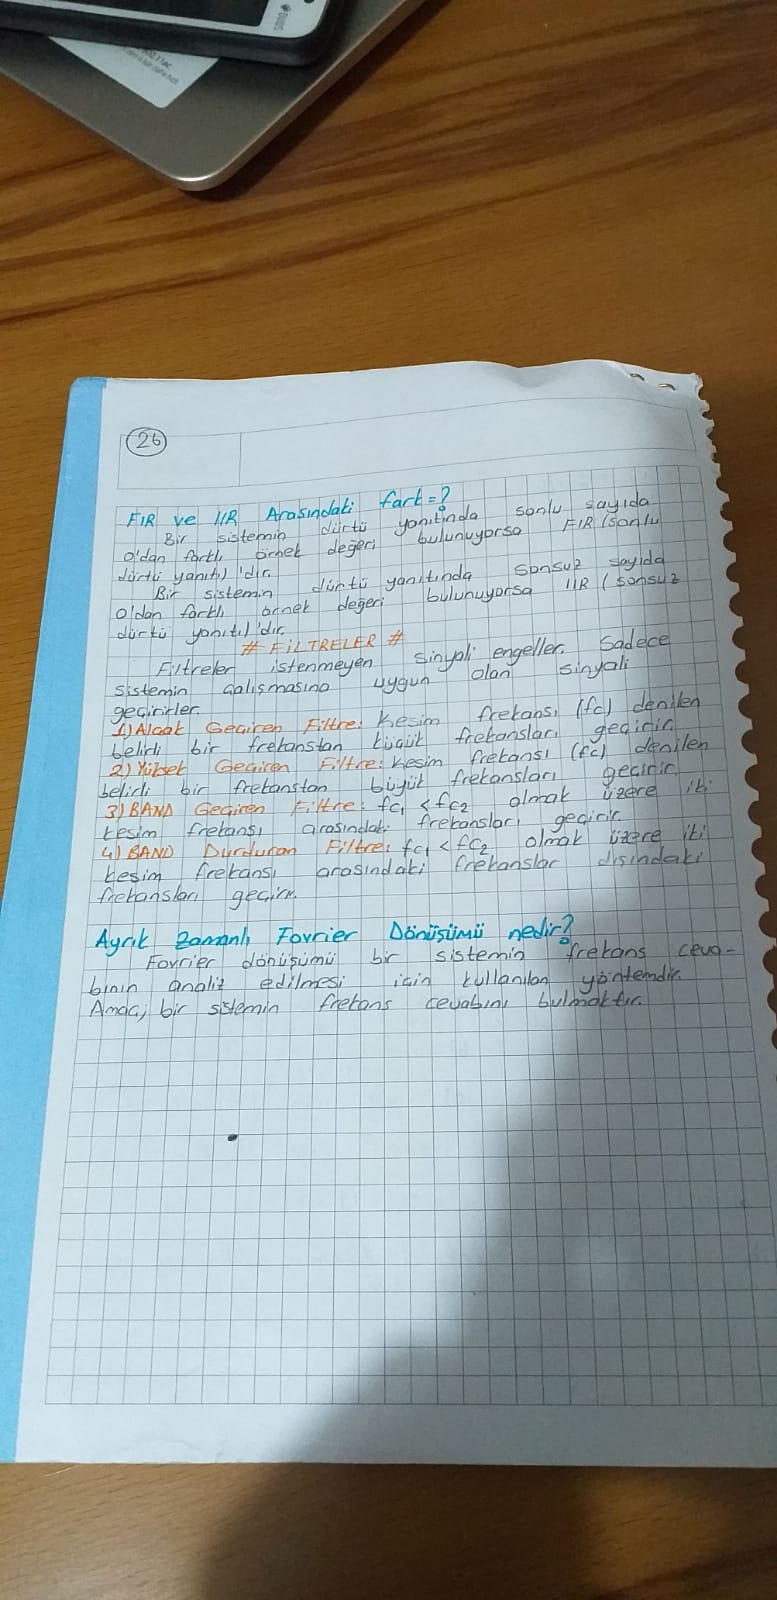 26
FIR ve IIR Arasındaki fark=?
Bir sistemin dürtü yanıtında sonlu sayıda
0'dan farklı örnek değeri bulunuyorsa FIR (sonlu
dürtü yanıtı) 'dır.
Bir sistemin dürtü yanıtında sonsuz sayıda
0'dan farklı örnek değeri bulunuyorsa IIR (sonsuz
dürtü yanıtı) 'dır.
# FİLTRELER #
Filtreler istenmeyen sinyali engeller. Sadece
sistemin çalışmasına uygun olan sinyali
geçirirler.
1) Alçak Geçiren Filtre: Kesim frekansı (fc) denilen
belirli bir frekanstan küçük frekansları geçirir.
2) Yüksek Geçiren Filtre: Kesim frekansı (fc) denilen
belirli bir frekanstan büyük frekansları geçirir.
3) BAND Geçiren Filtre: fc1 < fc2 olmak üzere iki
kesim frekansı arasındaki frekansları geçirir.
4) BAND Durduran Filtre: fc1 < fc2 olmak üzere iki
kesim frekansı arasındaki frekanslar dışındaki
frekansları geçirir.
Ayrık Zamanlı Fovrier Dönüşümü nedir?
Fovrier dönüşümü bir sistemin frekans ceva-
bının analiz edilmesi için kullanılan yöntemdir.
Amaç; bir sistemin frekans cevabını bulmaktır.